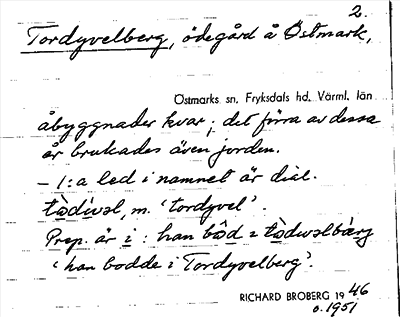 2.
Tordyvelberg, ödegård å Östmark,
Östmarks sn, Fryksdals hd, Värml. län
åbyggnader kvar; det förra av dessa
år brukades även jorden.
– 1:a led i namnet är dial.
tòdivəl, m. 'tordyvel'.
Prep. är i: han bōd i tòdivəlbærj
'han bodde i Tordyvelberg'.
RICHARD BROBERG 1946
o. 1951